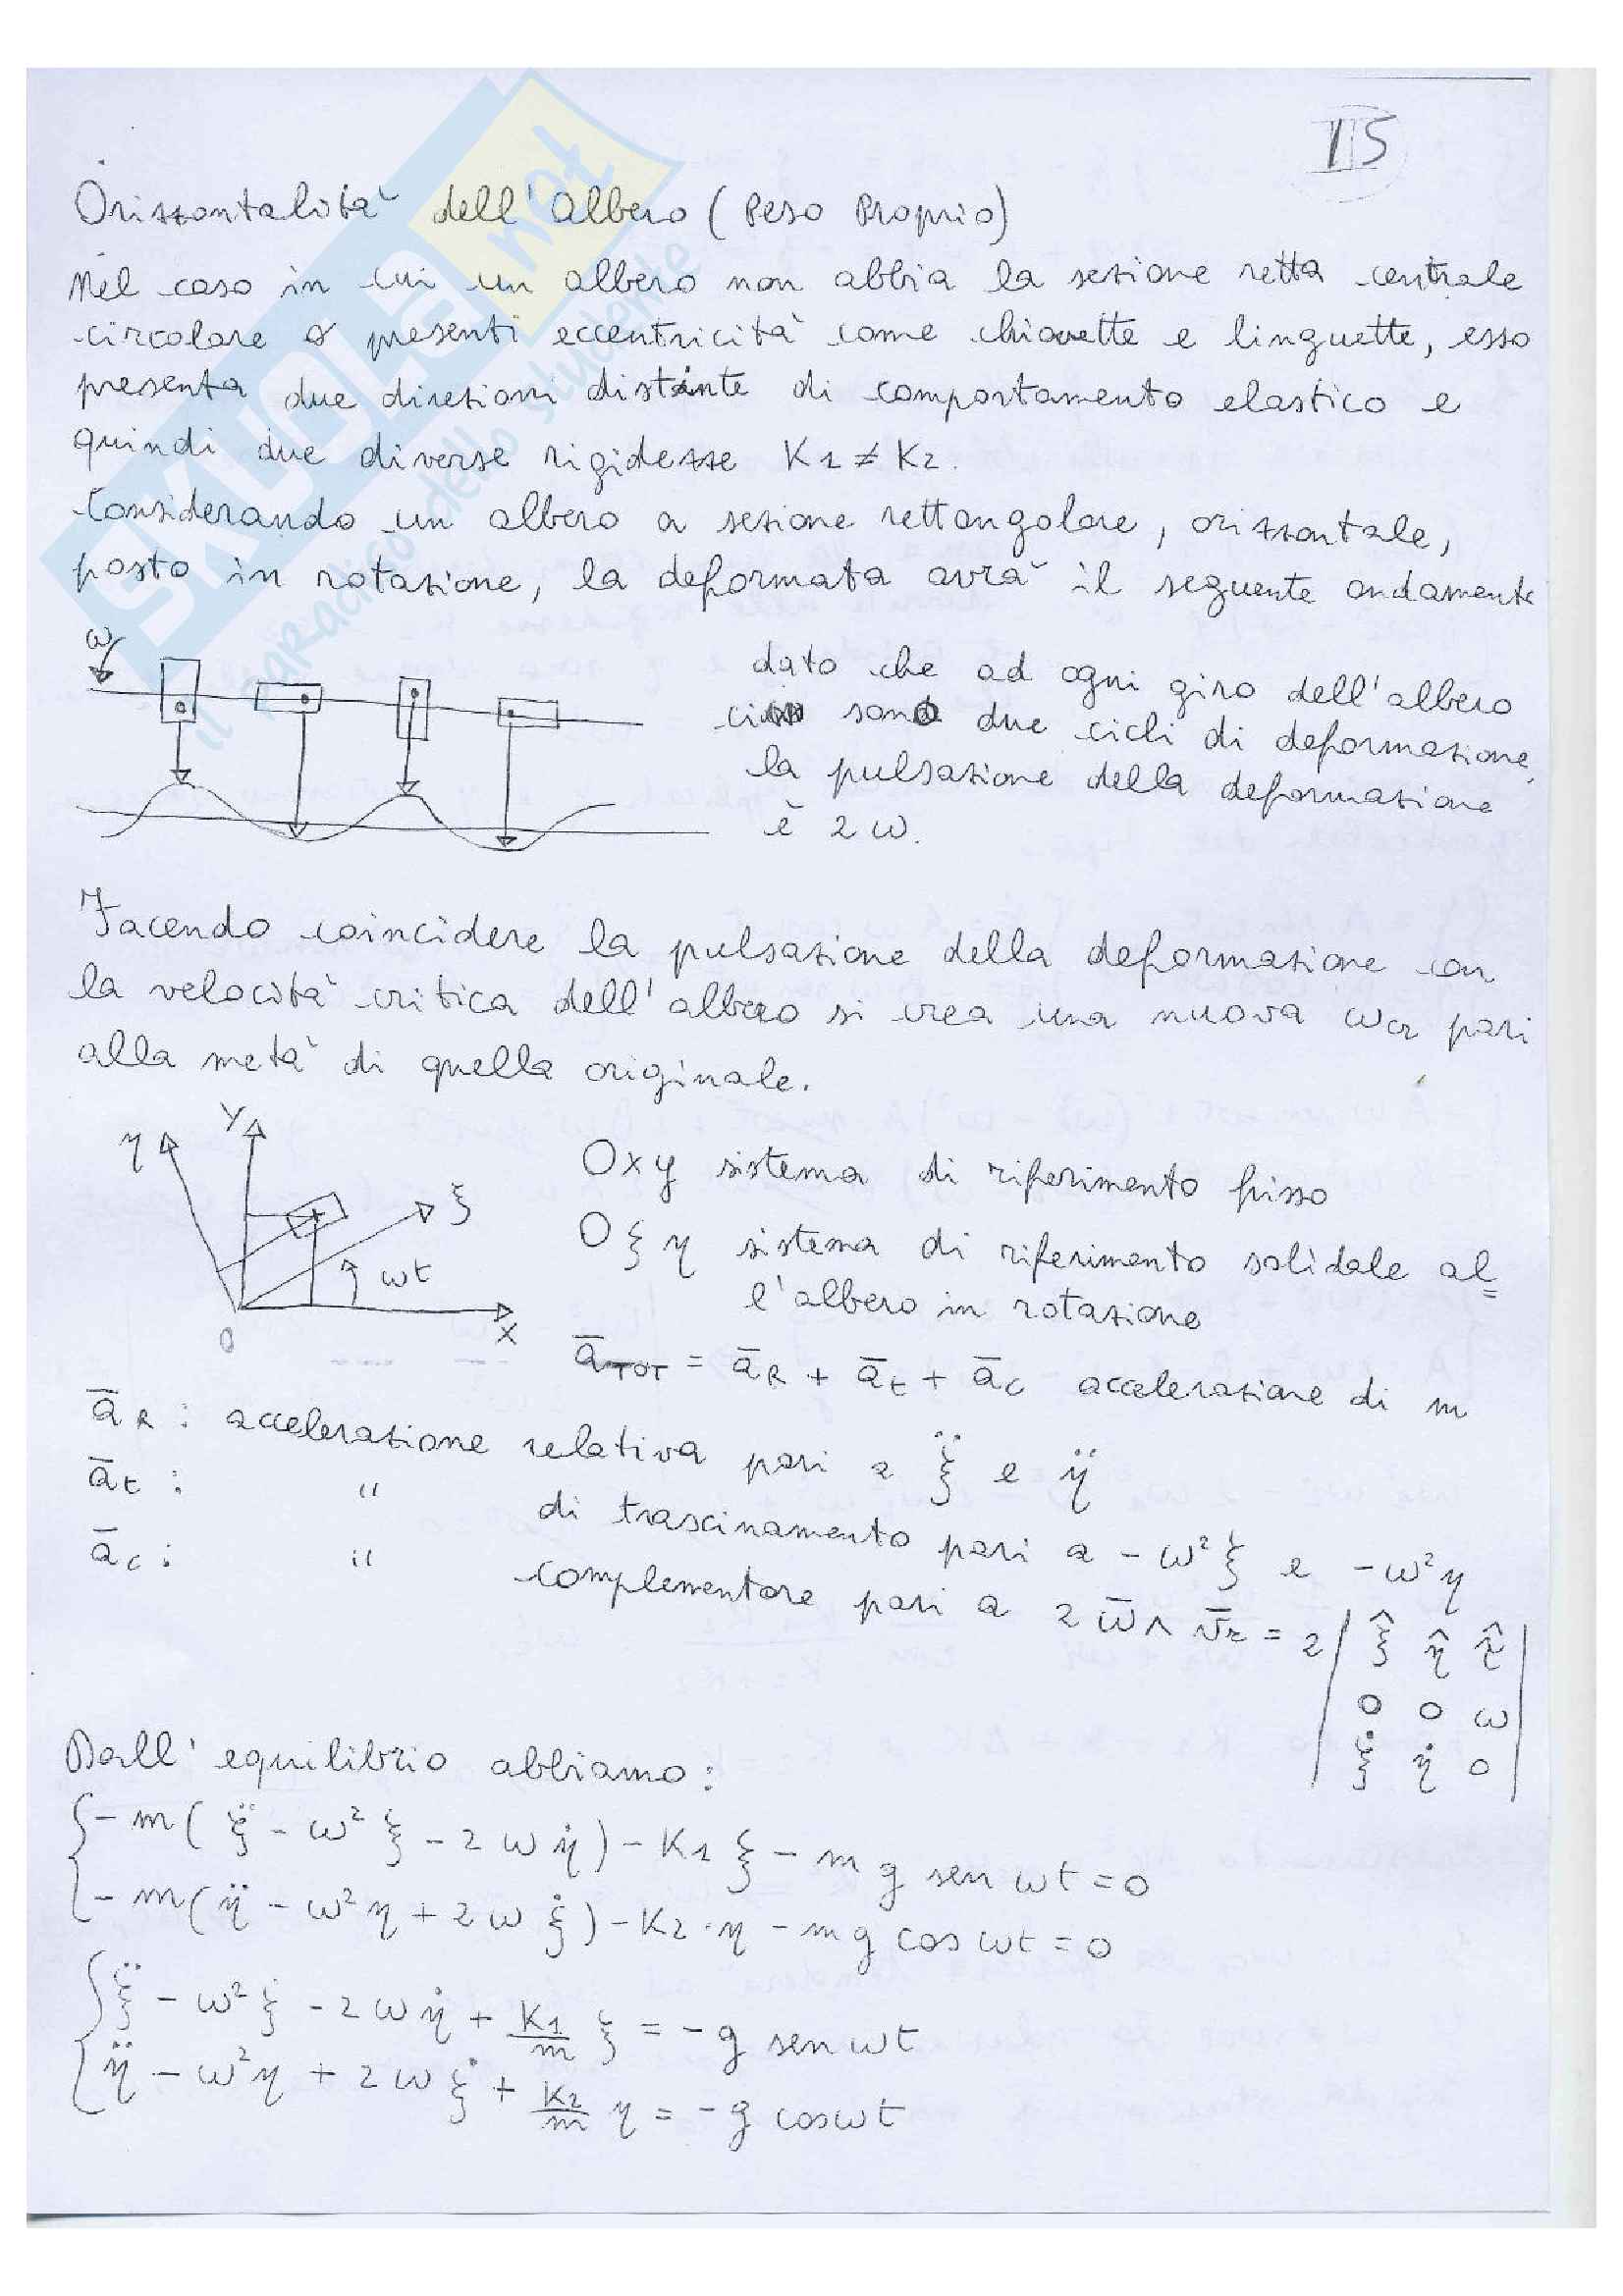 II5
Orizzontalità dell'albero (Peso Proprio)
Nel caso in cui un albero non abbia la sezione retta centrale
circolare o presenti eccentricità come chiavette e linguette, esso
presenta due direzioni distinte di comportamento elastico e
quindi due diverse rigidezze K1 ≠ K2.
Considerando un albero a sezione rettangolare, orizzontale,
posto in rotazione, la deformata avrà il seguente andamento
ω
dato che ad ogni giro dell'albero
ci sono due cicli di deformazione,
la pulsazione della deformazione
è 2ω.
Facendo coincidere la pulsazione della deformazione con
la velocità critica dell'albero si crea una nuova ωcr pari
alla metà di quella originale.
η Y ξ ωt X O
Oxy sistema di riferimento fisso
Oξη sistema di riferimento solidale al=
l'albero in rotazione
a̅TOT = a̅R + a̅t + a̅c accelerazione di m
a̅R : accelerazione relativa pari a ξ̈ e η̈
a̅t : " di trascinamento pari a -ω²ξ e -ω²η
a̅c : " complementare pari a 2 ω̅ ∧ v̅r = 2 | ξ̂ η̂ ẑ |
| 0 0 ω |
| ξ̇ η̇ 0 |
Dall'equilibrio abbiamo:
{ -m( ξ̈ - ω²ξ - 2ωη̇ ) - K1ξ - mg sen ωt = 0
-m( η̈ - ω²η + 2ωξ̇ ) - K2·η - mg cos ωt = 0
{ ξ̈ - ω²ξ - 2ωη̇ + K1/m ξ = -g sen ωt
η̈ - ω²η + 2ωξ̇ + K2/m η = -g cos ωt
SKUOLA.net
il paradiso dello studente